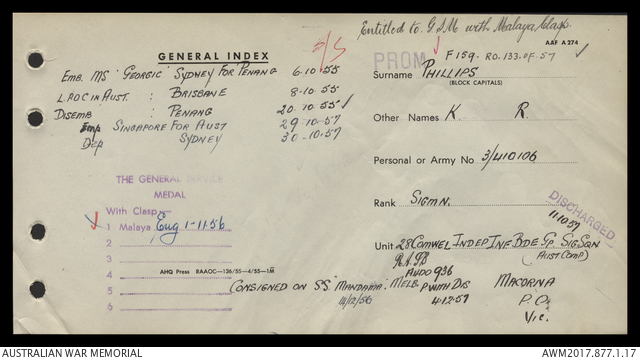 Entitled to G.S.M with Malaya Clasp.
AAF A274
GENERAL INDEX
PROM
F159 - RO.133.OF.57
Emb. MS "GEORGIC" SYDNEY FOR PENANG 6-10-55
L.POC IN AUST. : BRISBANE 8-10-55
DISEMB : PENANG 20-10-55
Emp SINGAPORE FOR AUST 29-10-57
Dep SYDNEY 30-10-57
Surname PHILLIPS
(BLOCK CAPITALS)
Other Names K R.
Personal or Army No 3/410106
Rank SIGMN.
DISCHARGED
11.10.59
Unit 28 COMWEL INDEP INF BDE GP SIG SQN
(AUST COMP)
THE GENERAL SERVICE
MEDAL
With Clasp:—
1 Malaya Eng 1-11-56
2
3
4
5
6
AHQ Press RAAOC—136/55—4/55—1M
CONSIGNED ON SS "MANDAMA" MELB.
11/12/56
AUDO 936
P WITH DIS
4.12.59
MACORNA
P.O.
Vic.
AUSTRALIAN WAR MEMORIAL
AWM2017.877.1.17